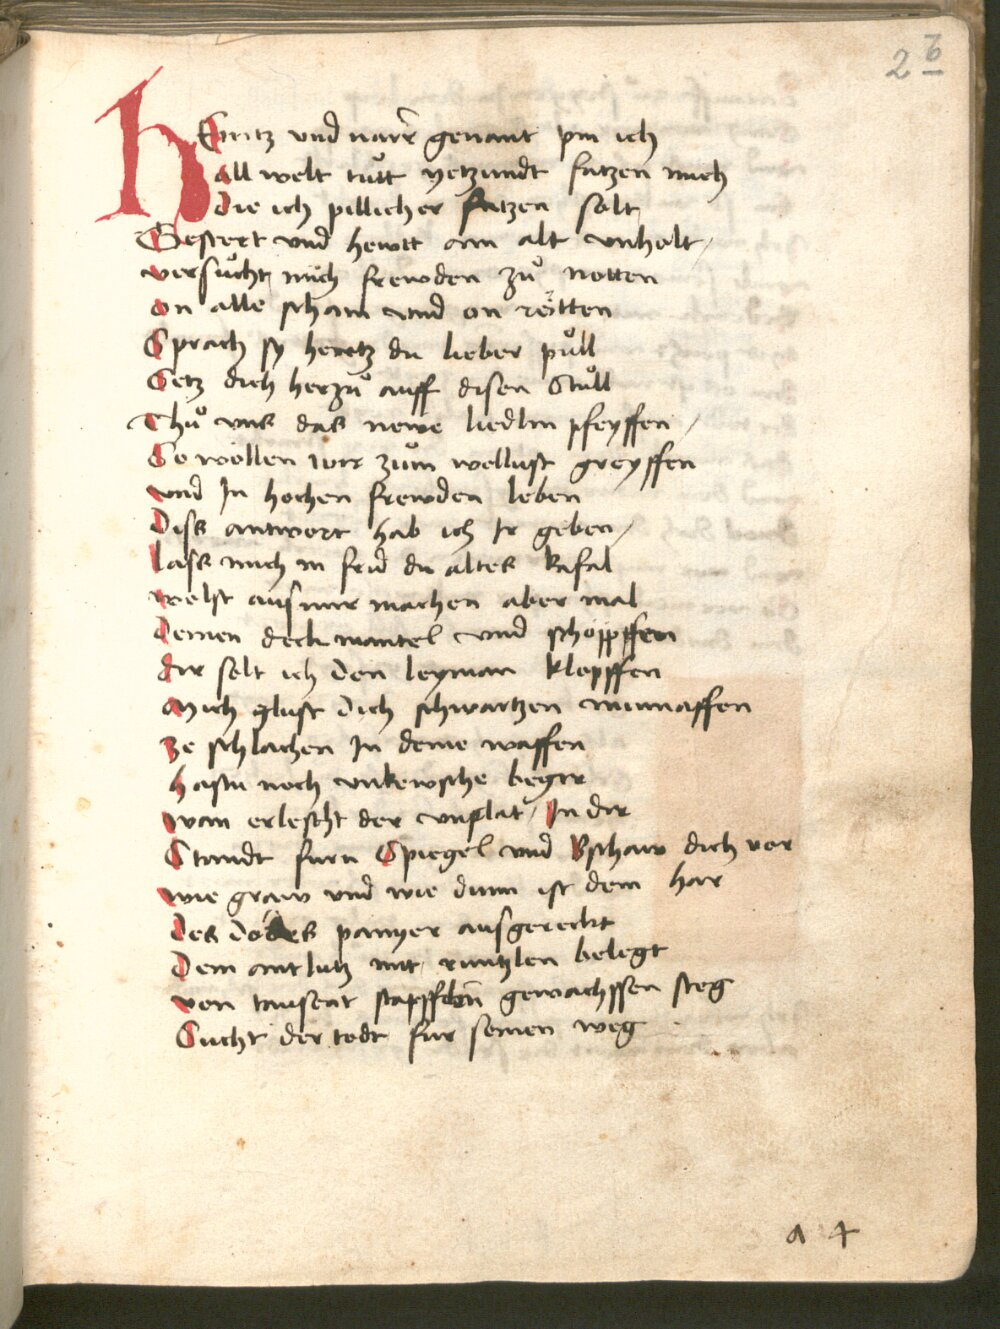 2 b
HEintz und narr genant pin ich
all welt tuͦtt yetzundt fatzen mich
die ich pillicher fatzen solt
Gestert und hewtt ain alt unholt /
versuͦcht mich frewden zuͦ notten
on alle scham und on rötten
Sprach sy heintz du lieber puͦll
Setz dich herzuͦ auff disen Stuͦll
Thuͦ uns das newe liedlin pfeyffen /
So wöllen wir zuͦm wollust greyffen
und In hochen frewden leben
Diss antwort hab ich Ir geben /
lass mich in frid du altes kafal
welst aus mir machen aber mal
Deinen deck mantel und schöppffen
dir solt ich den leyman klopffen
Mich glust dich schwartzen mumaffen
ze schlachen In deine waffen
hastu noch unkewsche begir
wan erlescht der unplat / In dir
Standt furn Spiegel und Bschaw dich vor
wie graw und wie dunn ist dein har
Des dodes panyer ausgereckt
Dein antlutz mit runtzlen belegt
von tausent stapfflen gewachssen steg
Sucht der todt fur seinen weg
a 4